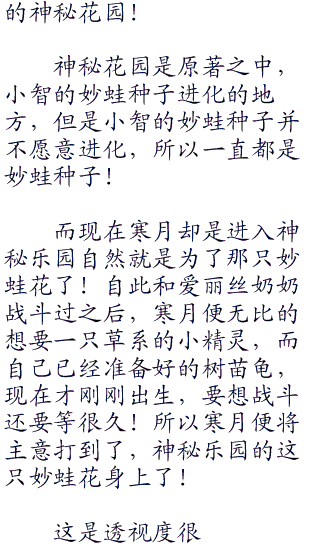 的神秘花园！
神秘花园是原著之中，
小智的妙蛙种子进化的地
方，但是小智的妙蛙种子并
不愿意进化，所以一直都是
妙蛙种子！
而现在寒月却是进入神
秘乐园自然就是为了那只妙
蛙花了！自此和爱丽丝奶奶
战斗过之后，寒月便无比的
想要一只草系的小精灵，而
自己已经准备好的树苗龟，
现在才刚刚出生，要想战斗
还要等很久！所以寒月便将
主意打到了，神秘乐园的这
只妙蛙花身上了！
这是透视度很